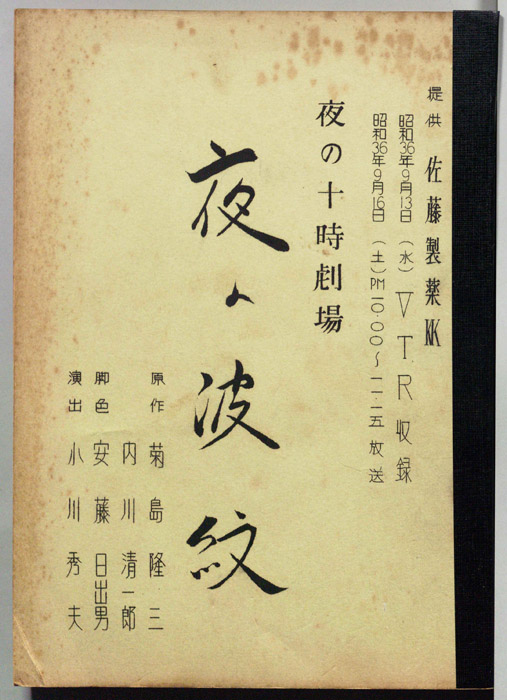 提供 佐藤製薬KK
昭和36年9月13日(水)VTR収録
昭和36年9月16日(土)PM一〇・〇〇〜一一・一五放送
夜の十時劇場
夜の波紋
原作 菊島隆三
内川清一郎
脚色 安藤日出男
演出 小川秀夫